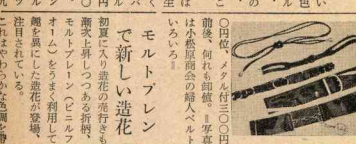 〇円位、メタル付三〇〇円
前後、何れも卸値。＝写真
は小松原商会の婦人ベルト
いろいろ＝
モルトプレン
で新しい造花
初夏に入り造花の売行きも
漸次上昇しつつある折柄、
モルトプレーン（ビニルフ
オーム）をうまく利用して
趣を異にした造花が登場、
注目されている。
これはやわらかな色調を帯